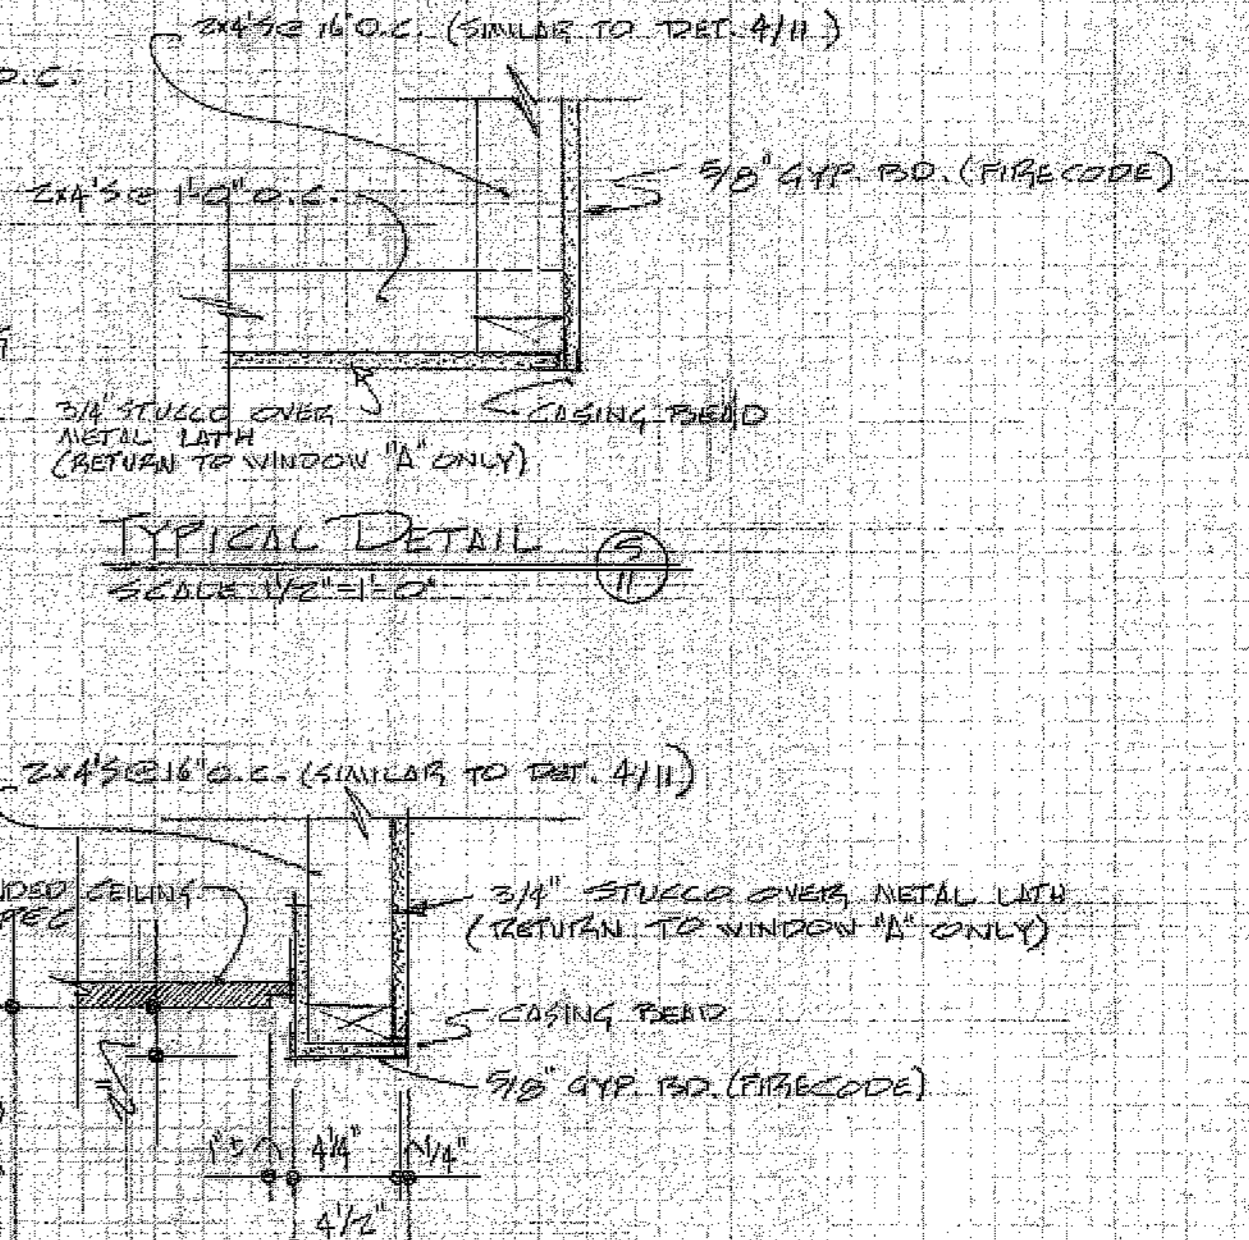 2x4'S @ 16" O.C. (SIMILAR TO DET. 4/11)
O.C.
5/8" GYP. BD. (FIRECODE)
2x4'S @ 1'-0" O.C.
3/4" STUCCO OVER
METAL LATH
(RETURN TO WINDOW "A" ONLY)
CASING BEAD
TYPICAL DETAIL
5
11
SCALE 1 1/2"=1'-0"
2x4'S @ 16" O.C. (SIMILAR TO DET. 4/11)
NDED CEILING
PEC
3/4" STUCCO OVER METAL LATH
(RETURN TO WINDOW "A" ONLY)
CASING BEAD
5/8" GYP. BD. (FIRECODE)
1"± 4 1/4" 1/4"
4 1/2"